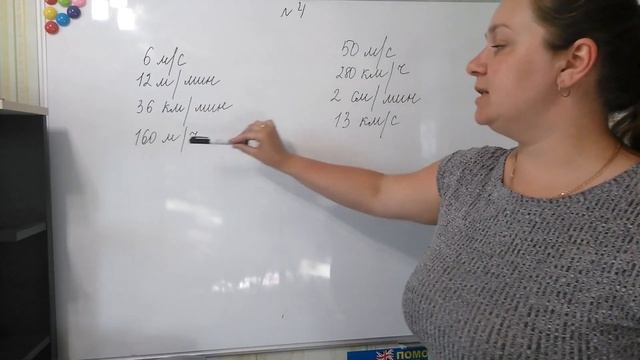 №4
6 м/с
12 м/мин
36 км/мин
160 м/ч
50 м/с
280 км/ч
2 см/мин
13 км/с
ПОМО